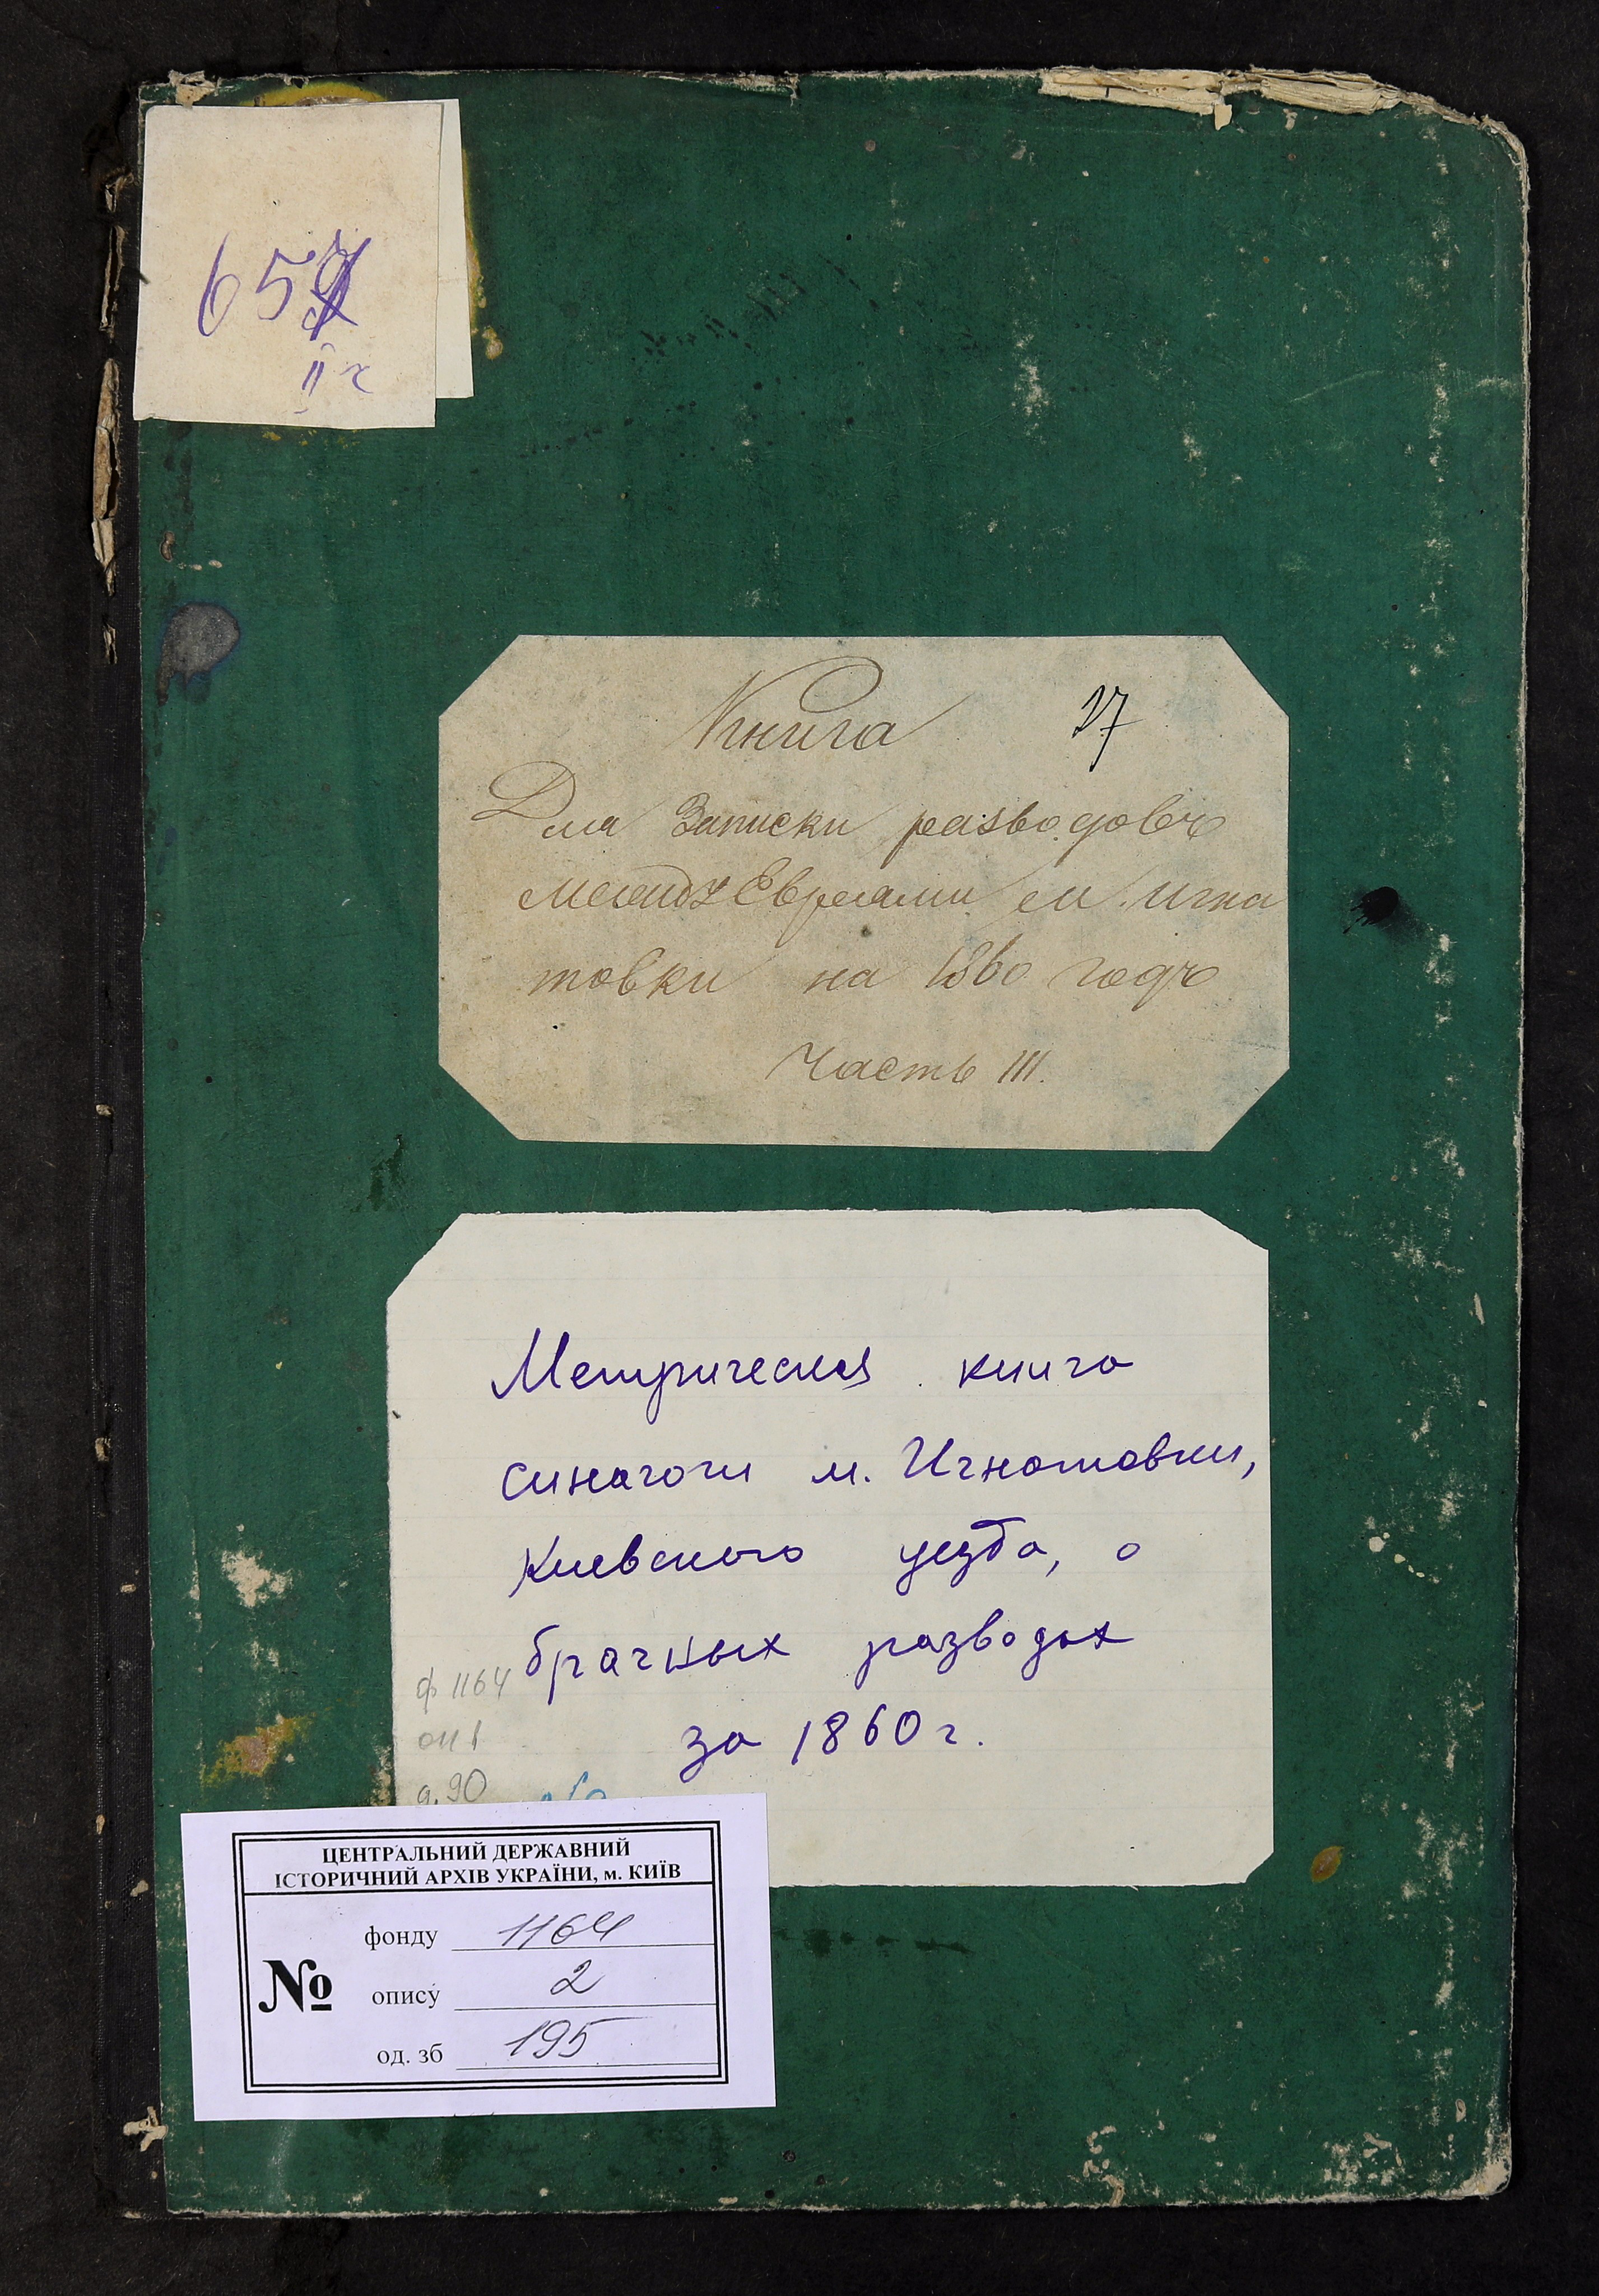 65
II ч
Книга 27
Для Записки разводовъ
между Евреями м. Игна
товки на 1860 годъ
Часть III.
Метрическая книга
синагоги м. Игнатовки,
Киевского уезда, о
брачных разводах
за 1860 г.
ф 1164
оп 1
д. 90
ЦЕНТРАЛЬНИЙ ДЕРЖАВНИЙ
ІСТОРИЧНИЙ АРХІВ УКРАЇНИ, м. КИЇВ
№
фонду 1164
опису 2
од. зб 195